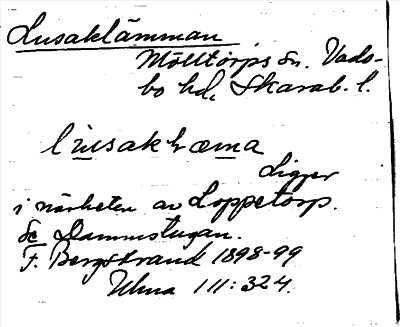 Lusaklämman
Mölltorps sn. Vads-
bo hd, Skarab. l.
Ligger
i närheten av Loppetorp.
Se Dammstugan.
F. Bergstrand 1898-99
Ulma 111:324.